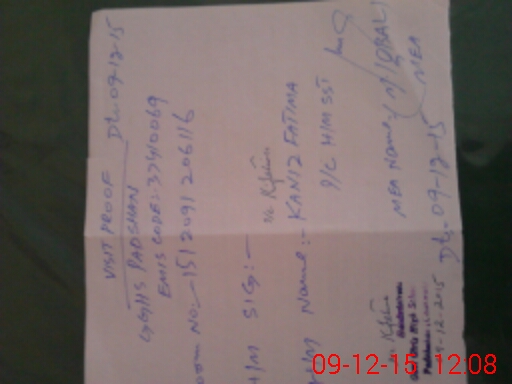 VISIT PROOF Dt:-09-12-15
GGHS PADSHAN
EMIS CODE:- 37410069
Room No:- 151209120 6116
H/M SIG:-
H/M Name:- KANIZ FATIMA
I/C H/M SST
MEA Name:- M. IQBAL
MEA
Dt:- 09-12-15
09-12-2015
09-12-15 12:08